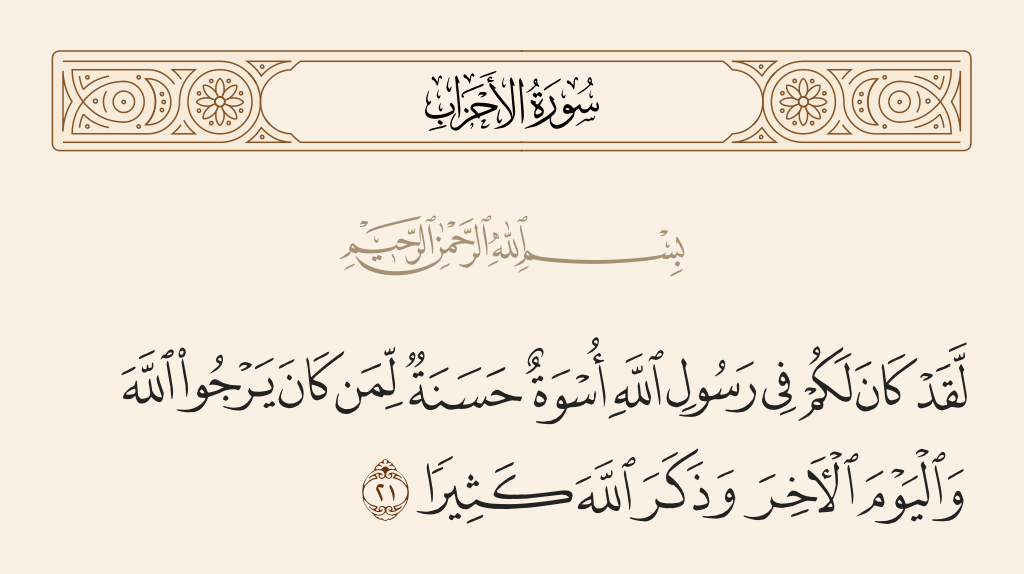 سُورَةُ الأَحْزَابِ
بِسْمِ ٱللَّهِ ٱلرَّحْمَٰنِ ٱلرَّحِيمِ
لَّقَدْ كَانَ لَكُمْ فِى رَسُولِ ٱللَّهِ أُسْوَةٌ حَسَنَةٌ لِّمَن كَانَ يَرْجُوا۟ ٱللَّهَ
وَٱلْيَوْمَ ٱلْـَٔاخِرَ وَذَكَرَ ٱللَّهَ كَثِيرًا ٢١